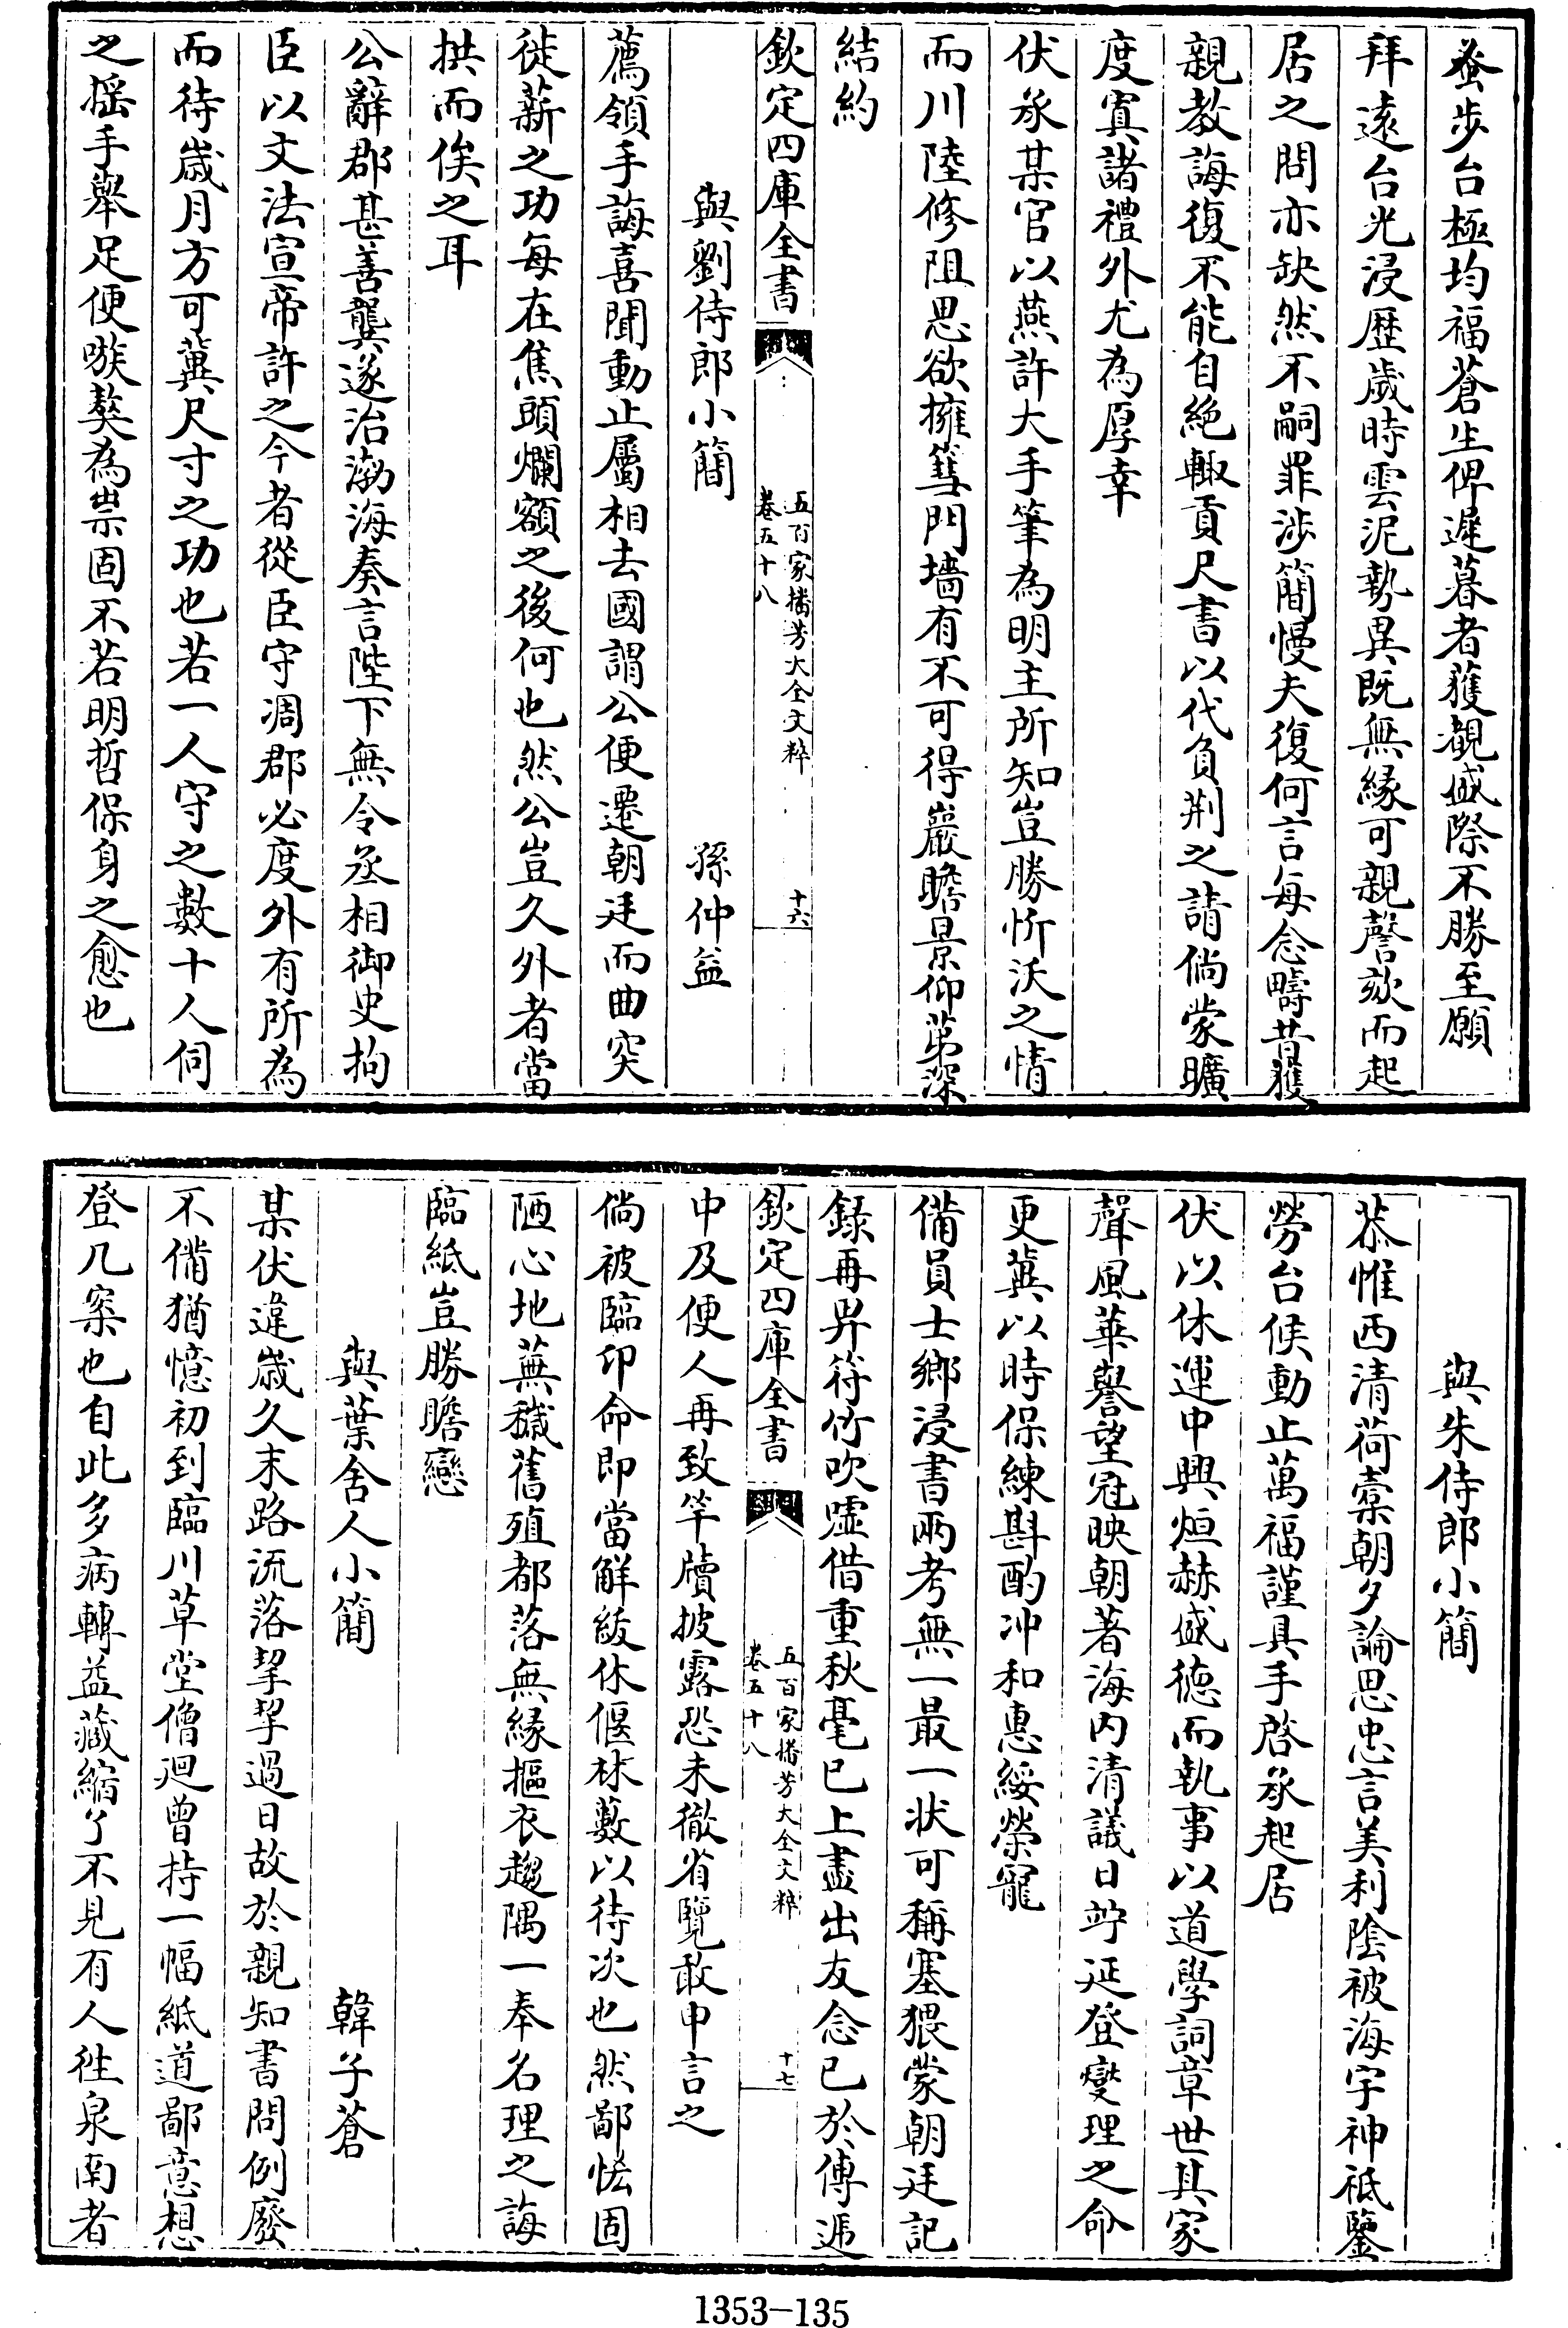 蚤步台極均福蒼生俾遲暮者獲覩盛際不勝至願
拜遠台光浸歴歲時雲泥勢異既無緣可親謦欬而起
居之問亦缺然不嗣罪涉簡慢夫復何言每念疇昔獲
親教誨復不能自絶輙貢尺書以代負荆之請倘蒙曠
度寘諸禮外尤為厚幸
伏承某官以燕許大手筆為明主所知豈勝忻沃之情
而川陸修阻思欲擁篲門墻有不可得巖瞻景仰苐深
結約
欽定四庫全書
五百家播芳大全文粹
卷五十八
十六
與劉侍郎小簡　孫仲益
薦領手誨喜聞動止屬相去國謂公便遷朝廷而曲突
徙薪之功每在焦頭爛額之後何也然公豈久外者當
拱而俟之耳
公辭郡甚善龔遂治渤海奏言陛下無令丞相御史拘
臣以文法宣帝許之今者從臣守凋郡必度外有所為
而待歲月方可冀尺寸之功也若一人守之數十人伺
之摇手舉足便嗾獒為祟固不若明哲保身之愈也
與朱侍郎小簡
恭惟西清荷橐朝夕論思忠言美利陰被海宇神祗鑒
勞台候動止萬福謹具手啓承起居
伏以休運中興烜赫盛徳而執事以道學詞章世其家
聲風華譽望冠映朝著海内清議日竚延登爕理之命
更冀以時保練斟酌冲和惠綏榮寵
備員士鄉浸書兩考無一最一状可稱塞猥蒙朝廷記
錄再畀符竹吹噓借重秋毫已上盡出友念已於傳逓
欽定四庫全書
五百家播芳大全文粹
卷五十八
十七
中及便人再致竿牘披露恐未徹省覽敢申言之
倘被臨卭命即當解紱休偃林藪以待次也然鄙悋固
陋心地蕪穢舊殖都落無緣摳衣趨隅一奉名理之誨
臨紙豈勝瞻戀
與葉舍人小簡　韓子蒼
某伏違歲久末路流落挈挈過日故於親知書問例廢
不備猶憶初到臨川草堂僧迴曾持一幅紙道鄙意想
登几案也自此多病轉益藏縮了不見有人徃泉南者
1353—135